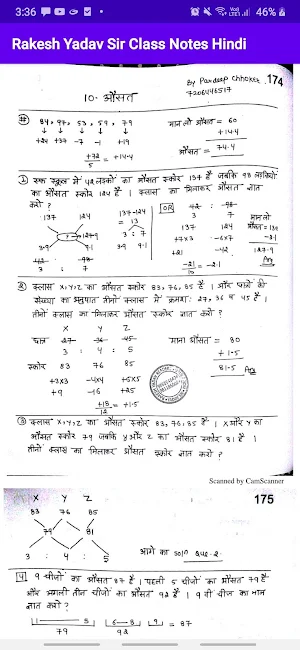 3:36
46%
Rakesh Yadav Sir Class Notes Hindi
By Pardeep Chhoker 174
7206446517
10. औसत
84, 97, 53, 59, 79
+24 +37 -7 -1 +19
+72/5 = +14.4
मान लो औसत = 60
+14.4
औसत = 74.4
① एक स्कूल में 42 लड़कों का औसत स्कोर 137 है जबकि 98 लड़कियों
का औसत स्कोर 124 है । क्लास का मिलाकर औसत ज्ञात
करो ?
137 124
127.9
3.9 9.1
42 : 98
3 : 7
137-124
= 13
3 : 7
3.9 9.1
OR
42 : 98
3 7
137 124
+7×3 -6×7
+21 -42
-21/10 = -2.1
मान लो
औसत = 130
-2.1
127.9
Ans
② क्लास X, Y, Z का औसत स्कोर 83, 76, 85 है । और छात्रों की
संख्या का अनुपात तीनों क्लास में क्रमशः 27, 36 व 45 है ।
तीनों क्लास का मिलाकर औसत स्कोर ज्ञात करो ?
X Y Z
छात्र 27 : 36 : 45
3 : 4 : 5
स्कोर 83 76 85
+3×3 -4×4 +5×5
+9 -16 +25
+18/12 = +1.5
माना औसत = 80
+1.5
81.5 Ans
③ क्लास X, Y, Z का औसत स्कोर 83, 76, 85 है । X और Y का
औसत स्कोर 79 जबकि Y और Z का औसत स्कोर 81 है ।
तीनों क्लास का मिलाकर औसत स्कोर ज्ञात करो ?
Scanned by CamScanner
175
X Y Z
83 76 85
79 81
3 : 4 : 5
आगे का Soln Que-2
4 9 चीजों का औसत 87 है । पहली 5 चीजों का औसत 79 है
और अगली तीन चीजों का औसत 92 है । 9 वीं चीज का मान
ज्ञात करो ?
1 5 6-8 9 = 87
79 92